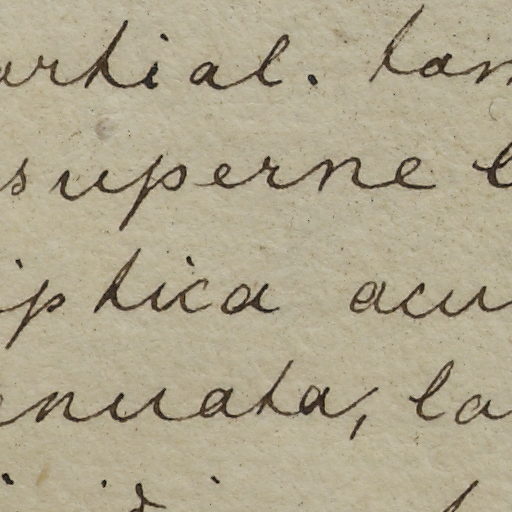 artial. tam
superne l
iptica acu
enuata, la